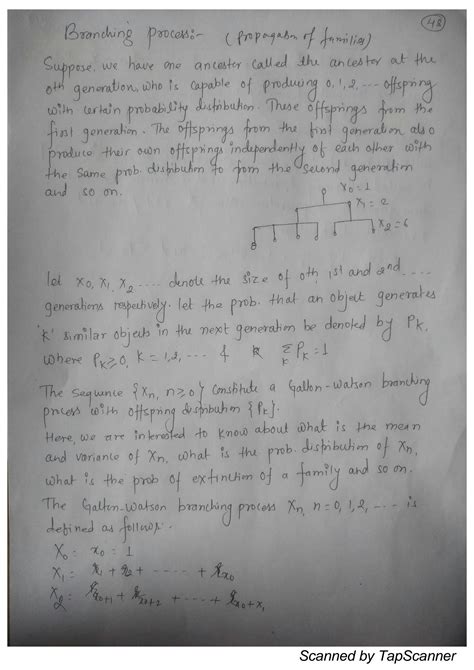 48
Branching process:- (propagation of families)
Suppose we have one ancester called the ancester at the
0th generation, who is capable of producing 0, 1, 2, ... offspring
with certain probability distribution. These offsprings from the
first generation. The offsprings from the first generation also
produce their own offsprings independently of each other with
the same prob. distribution to form the second generation
and so on.
X0 = 1
X1 = 2
X2 = 6
let X0, X1, X2 .... denote the size of 0th, 1st and 2nd ....
generations respectively. let the prob. that an object generates
'k' similar objects in the next generation be denoted by Pk,
where Pk ≥ 0, k = 1, 2, ... & Σk Pk = 1
The sequence {Xn, n ≥ 0} constitute a Galton-Watson branching
process with offspring distribution {Pk}.
Here, we are interested to know about what is the mean
and variance of Xn, what is the prob. distribution of Xn,
what is the prob of extinction of a family and so on.
The Galton-Watson branching process Xn, n = 0, 1, 2, ... is
defined as follows.
X0 = x0 = 1
X1 = ξ1 + ξ2 + ..... + ξx0
X2 = ξx0+1 + ξx0+2 + ... + ξx0+x1
Scanned by TapScanner